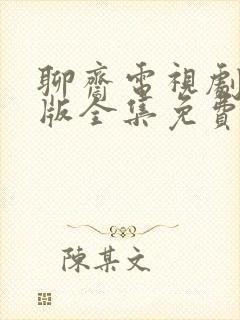 聊齋電視劇
版全集免費
陳某文